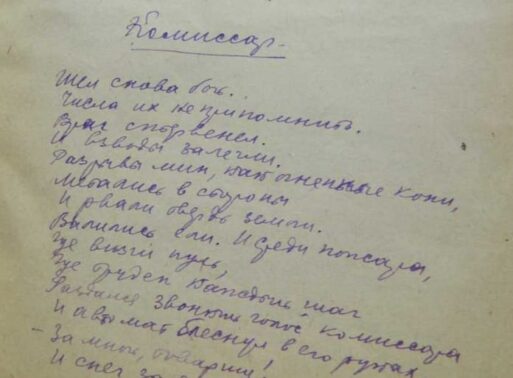 Комиссар.
Шел снова бой.
Числа их не припомнить.
Враг стервенел.
И взводы залегли.
Разрывы мин, как огненные кони,
Метались в стороны
И рвали твердь земли.
Валились ели. И среди пожара,
Где визги пуль,
Где труден каждый шаг
Раздался звонкий голос комиссара
И автомат блеснул в его руках
- За мной, товарищи!
И снег